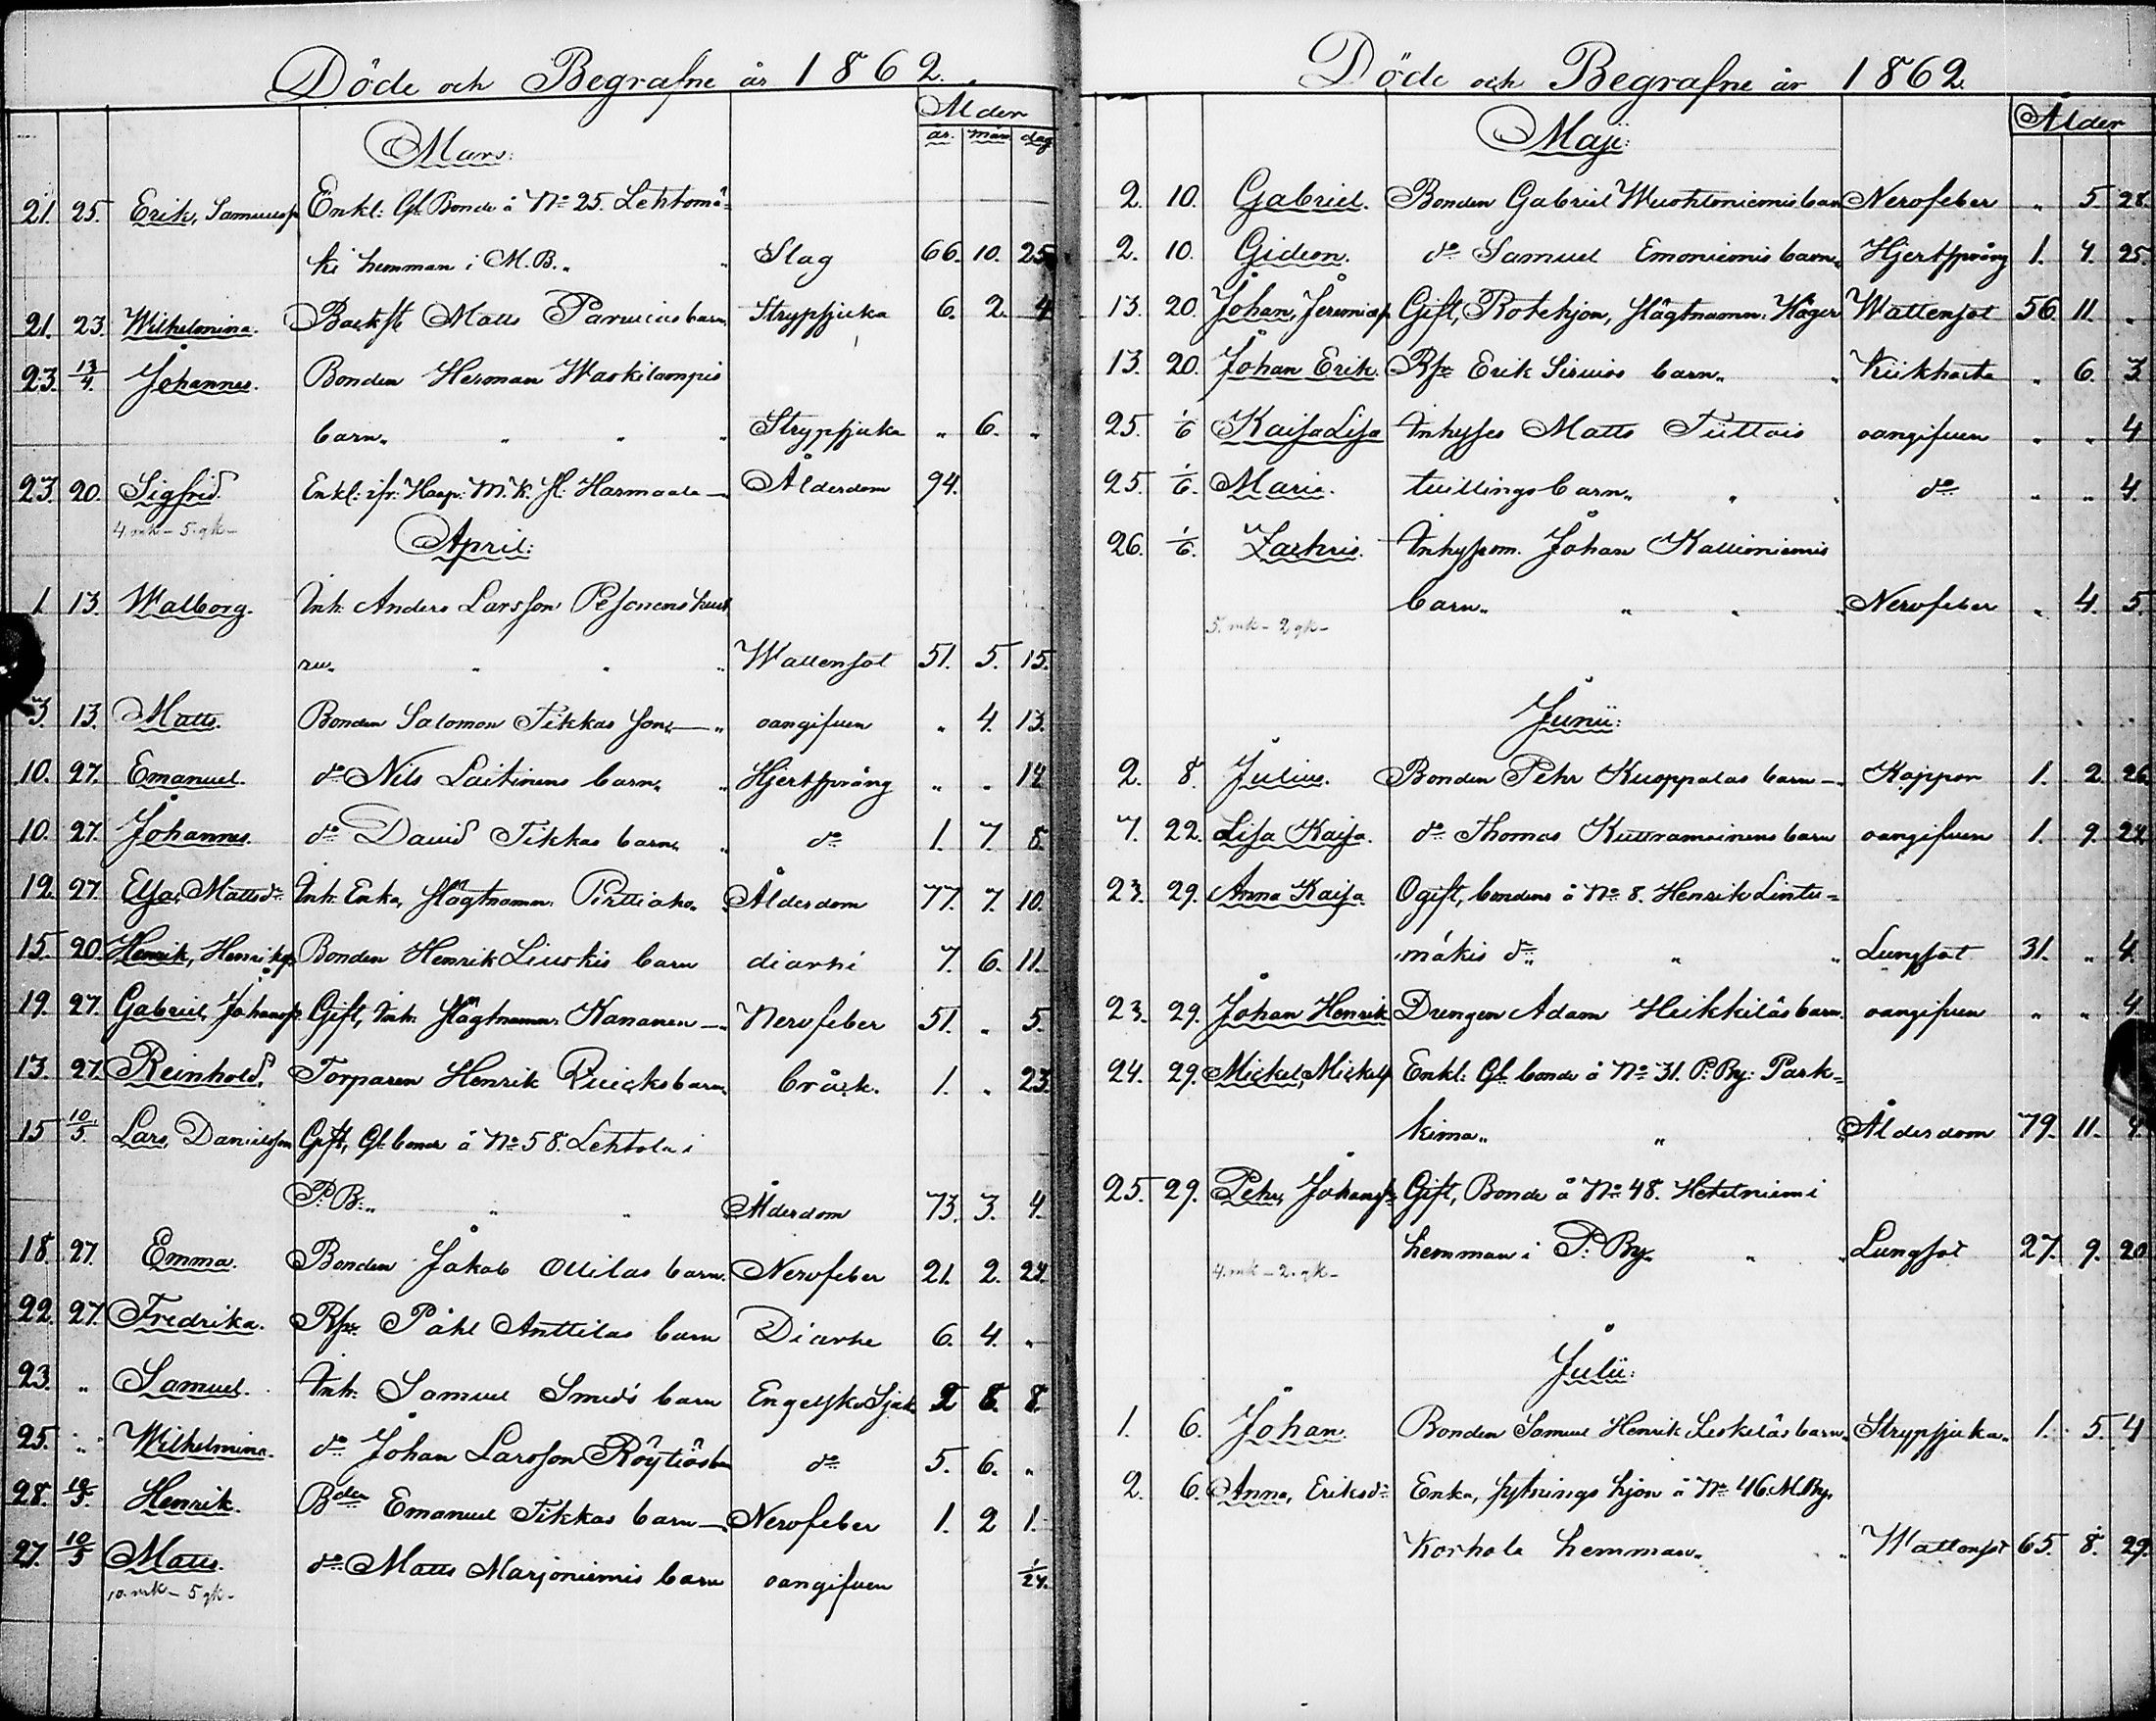 Döde och Begrafne år 1862.
Ålder
år. mån dag
Mars:
21. 25. Erik, Samuelsson Enkl: Gl. Bonde å No 25. Lehtomä-
ki hemman i M.B. „ „ Slag 66. 10. 25
21. 23. Wilhelmina. Backst Matts Parviais barn. Strypsjuka 6. 2. 4
23. 13/4. Johannes. Bonden Herman Waskilampis
barn „ „ „ „ Strypsjuka „ 6. „
23. 20. Sigfrid. Enkl: ifr: Haap: M.K. fl: Harmaala — Ålderdom 94.
4 mk - 5 qk -
April:
1. 13. Walborg. Inh. Anders Larsson Pesonens hust
ru „ „ „ „ Wattensot 51. 5. 15.
3. 13. Matts. Bonden Salomon Tikkas son — „ oangifven „ 4. 13.
10. 27. Emanuel. do Nils Laitinens barn „ „ Hjertsprång „ „ 14
10. 27. Johannes. do David Tikkas barn „ „ do 1. 7. 8.
12. 27. Elsa, Mattsdr Inh. Enka, slägtnamn: Pirttiaho „ Ålderdom 77. 7. 10.
15. 20. Henrik, Henriksson Bonden Henrik Liuskis barn diarhé 7. 6. 11.
19. 27. Gabriel, Johansson Gift, Inh. slägtnamn: Kananen — „ Nervfeber 51. „ 5.
13. 27. Reinhold. Torparen Henrik Quicks barn. bråck. 1. „ 23
15 10/5. Lars, Danielsson Gift, Gl. bonde å No 58. Lehtola i
P.B: „ „ „ Ålderdom 73. 3. 4.
18. 27. Emma. Bonden Jakob Ollilas barn. Nervfeber 21. 2. 24.
22. 27. Fredrika. Rpr Påhl Anttilas barn Diarhe 6. 4. „
23. „ Samuel. Inh. Samuel Smeds barn Engelska Sjuk 2 8. 8.
25. „ Wilhelmina. do Johan Larsson Röytiös do 5. 6. „
28. 10/5. Henrik. Bden Emanuel Tikkas barn — „ Nervfeber 1. 2 1.
27. 10/5 Matts. do Matts Marjoniemis barn oangifven 1/24.
10. mk - 5 qk -
Döde och Begrafne år 1862.
Ålder
Maji:
2. 10. Gabriel. Bonden Gabriel Wuohtoniemis barn Nervfeber „ 5. 28.
2. 10. Gideon. do Samuel Emoniemis barn „ Hjertsprång 1. 4. 25.
13. 20. Johan, Jeremiass. Gift, Rotehjon, slägtnamn: Häger Wattensot 56. 11. „
13. 20. Johan Erik. Rpr Erik Sirviös barn „ „ Kikhosta „ 6. 3
25. 1/6 Kaisa Lisa Inhyses Matts Tiittais oangifven „ „ 4
25. 1/6. Maria. tvillingsbarn „ „ „ do „ „ 4.
26. 1/6. Zachris. Inhysesm. Johan Kallioniemis
barn „ „ „ „ Nervfeber „ 4. 5.
5. mk - 2 qk -
Junii:
2. 8. Julius. Bonden Pehr Kuoppalas barn — „ Koppor 1. 2. 26
7. 22. Lisa Kaisa. do Thomas Kuvramainens barn oangifven 1. 9. 24
23. 29. Anna Kaisa. Ogift, bondens å No 8. Henrik Lintu=
mäkis dr „ „ „ Lungsot 31. „ 4.
23. 29. Johan Henrik Drengen Adam Heikkiläs barn. oangifven „ „ 4
24. 29. Mickel, Mickelss Enkl: Gl. bonde å No 31. P. By: Park=
kima „ „ „ Ålderdom 79. 11. 4.
25. 29. Pehr, Johansson Gift, Bonde å No 48. Hetetniemi
hemman i P. By „ „ „ Lungsot 27. 9. 20
4. mk - 2. qk -
Julii:
1. 6. Johan. Bonden Samuel Henrik Leskeläs barn „ Strypsjuka „ 1. 5. 4
2. 6. Anna, Eriksdr Enka, sytnings hjon å No 46. M.By.
Korhola hemman „ „ Wattensot 65. 8. 29.